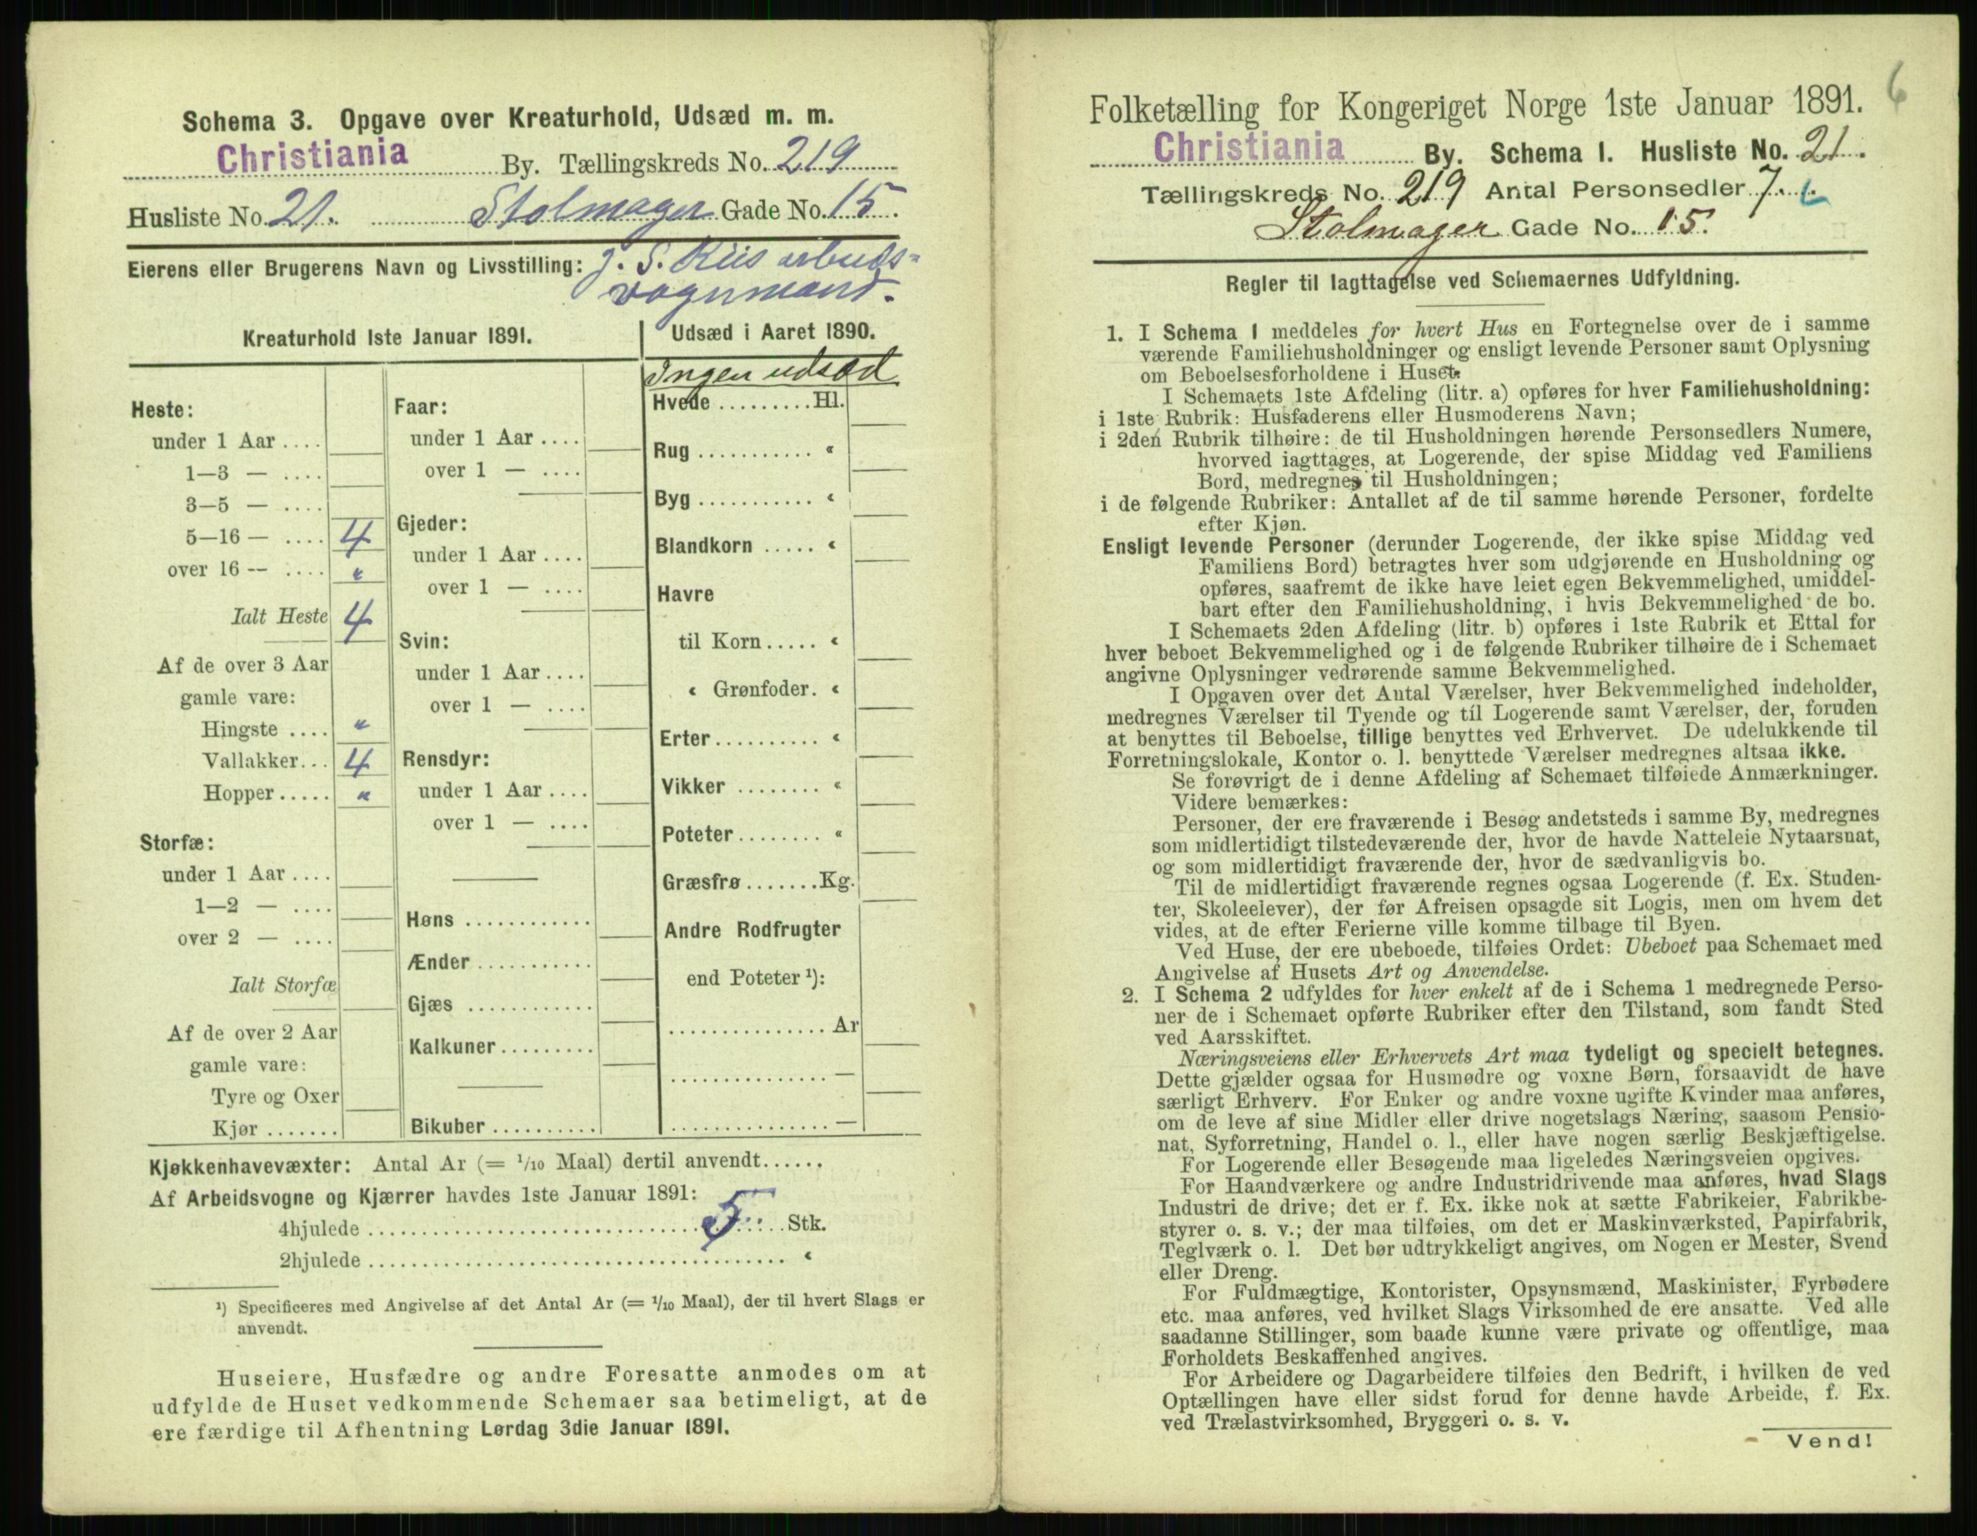 Schema 3. Opgave over Kreaturhold, Udsæd m. m.
Christiania By. Tællingskreds No. 219
Husliste No. 21. Stolmager Gade No. 15.
Eierens eller Brugerens Navn og Livsstilling: J. S. Riis arbeids-
vognmand.
Kreaturhold 1ste Januar 1891.
Heste:
under 1 Aar ....
1—3 — ....
3—5 — ....
5—16 — .... 4
over 16 — .... "
Ialt Heste 4
Af de over 3 Aar
gamle vare:
Hingste .... "
Vallakker... 4
Hopper ..... "
Storfæ:
under 1 Aar ....
1—2 — ....
over 2 — ....
Ialt Storfæ
Af de over 2 Aar
gamle vare:
Tyre og Oxer
Kjør .......
Faar:
under 1 Aar ....
over 1 — ....
Gjeder:
under 1 Aar ....
over 1 — ....
Svin:
under 1 Aar ....
over 1 — ....
Rensdyr:
under 1 Aar ....
over 1 — ....
Høns ............
Ænder ...........
Gjæs ............
Kalkuner .........
Bikuber ..........
Udsæd i Aaret 1890.
Ingen udsæd
Hvede ......... Hl.
Rug ........... "
Byg ........... "
Blandkorn ..... "
Havre
til Korn ..... "
" Grønfoder. "
Erter .......... "
Vikker ........ "
Poteter ........ "
Græsfrø ....... Kg.
Andre Rodfrugter
end Poteter ¹):
............... Ar
............... —
............... —
Kjøkkenhavevæxter: Antal Ar (= 1/10 Maal) dertil anvendt ......
Af Arbeidsvogne og Kjærrer havdes 1ste Januar 1891:
4hjulede ........ 5 ..... Stk.
2hjulede ........ "
¹) Specificeres med Angivelse af det Antal Ar (= 1/10 Maal), der til hvert Slags er
anvendt.
Huseiere, Husfædre og andre Foresatte anmodes om at
udfylde de Huset vedkommende Schemaer saa betimeligt, at de
ere færdige til Afhentning Lørdag 3die Januar 1891.
6
Folketælling for Kongeriget Norge 1ste Januar 1891.
Christiania By. Schema 1. Husliste No. 21.
Tællingskreds No. 219 Antal Personsedler 7.
Stolmager Gade No. 15.
Regler til Iagttagelse ved Schemaernes Udfyldning.
1. I Schema 1 meddeles for hvert Hus en Fortegnelse over de i samme
værende Familiehusholdninger og ensligt levende Personer samt Oplysning
om Beboelsesforholdene i Huset.
I Schemaets 1ste Afdeling (litr. a) opføres for hver Familiehusholdning:
i 1ste Rubrik: Husfaderens eller Husmoderens Navn;
i 2den Rubrik tilhøire: de til Husholdningen hørende Personsedlers Numere,
hvorved iagttages, at Logerende, der spise Middag ved Familiens
Bord, medregnes til Husholdningen;
i de følgende Rubriker: Antallet af de til samme hørende Personer, fordelte
efter Kjøn.
Ensligt levende Personer (derunder Logerende, der ikke spise Middag ved
Familiens Bord) betragtes hver som udgjørende en Husholdning og
opføres, saafremt de ikke have leiet egen Bekvemmelighed, umiddel-
bart efter den Familiehusholdning, i hvis Bekvemmelighed de bo.
I Schemaets 2den Afdeling (litr. b) opføres i 1ste Rubrik et Ettal for
hver beboet Bekvemmelighed og i de følgende Rubriker tilhøire de i Schemaet
angivne Oplysninger vedrørende samme Bekvemmelighed.
I Opgaven over det Antal Værelser, hver Bekvemmelighed indeholder,
medregnes Værelser til Tyende og til Logerende samt Værelser, der, foruden
at benyttes til Beboelse, tillige benyttes ved Erhvervet. De udelukkende til
Forretningslokale, Kontor o. l. benyttede Værelser medregnes altsaa ikke.
Se forøvrigt de i denne Afdeling af Schemaet tilføiede Anmærkninger.
Videre bemærkes:
Personer, der ere fraværende i Besøg andetsteds i samme By, medregnes
som midlertidigt tilstedeværende der, hvor de havde Natteleie Nytaarsnat,
og som midlertidigt fraværende der, hvor de sædvanligvis bo.
Til de midlertidigt fraværende regnes ogsaa Logerende (f. Ex. Studen-
ter, Skoleelever), der før Afreisen opsagde sit Logis, men om hvem det
vides, at de efter Ferierne ville komme tilbage til Byen.
Ved Huse, der ere ubeboede, tilføies Ordet: Ubeboet paa Schemaet med
Angivelse af Husets Art og Anvendelse.
2. I Schema 2 udfyldes for hver enkelt af de i Schema 1 medregnede Perso-
ner de i Schemaet opførte Rubriker efter den Tilstand, som fandt Sted
ved Aarsskiftet.
Næringsveiens eller Erhvervets Art maa tydeligt og specielt betegnes.
Dette gjælder ogsaa for Husmødre og voxne Børn, forsaavidt de have
særligt Erhverv. For Enker og andre voxne ugifte Kvinder maa anføres,
om de leve af sine Midler eller drive nogetslags Næring, saasom Pensio-
nat, Syforretning, Handel o. l., eller have nogen særlig Beskjæftigelse.
For Logerende eller Besøgende maa ligeledes Næringsveien opgives.
For Haandværkere og andre Industridrivende maa anføres, hvad Slags
Industri de drive; det er f. Ex. ikke nok at sætte Fabrikeier, Fabrikbe-
styrer o. s. v.; der maa tilføies, om det er Maskinværksted, Papirfabrik,
Teglværk o. l. Det bør udtrykkeligt angives, om Nogen er Mester, Svend
eller Dreng.
For Fuldmægtige, Kontorister, Opsynsmænd, Maskinister, Fyrbødere
etc. maa anføres, ved hvilket Slags Virksomhed de ere ansatte. Ved alle
saadanne Stillinger, som baade kunne være private og offentlige, maa
Forholdets Beskaffenhed angives.
For Arbeidere og Dagarbeidere tilføies den Bedrift, i hvilken de ved
Optællingen have eller sidst forud for denne havde Arbeide, f. Ex.
ved Trælastvirksomhed, Bryggeri o. s. v.
Vend!